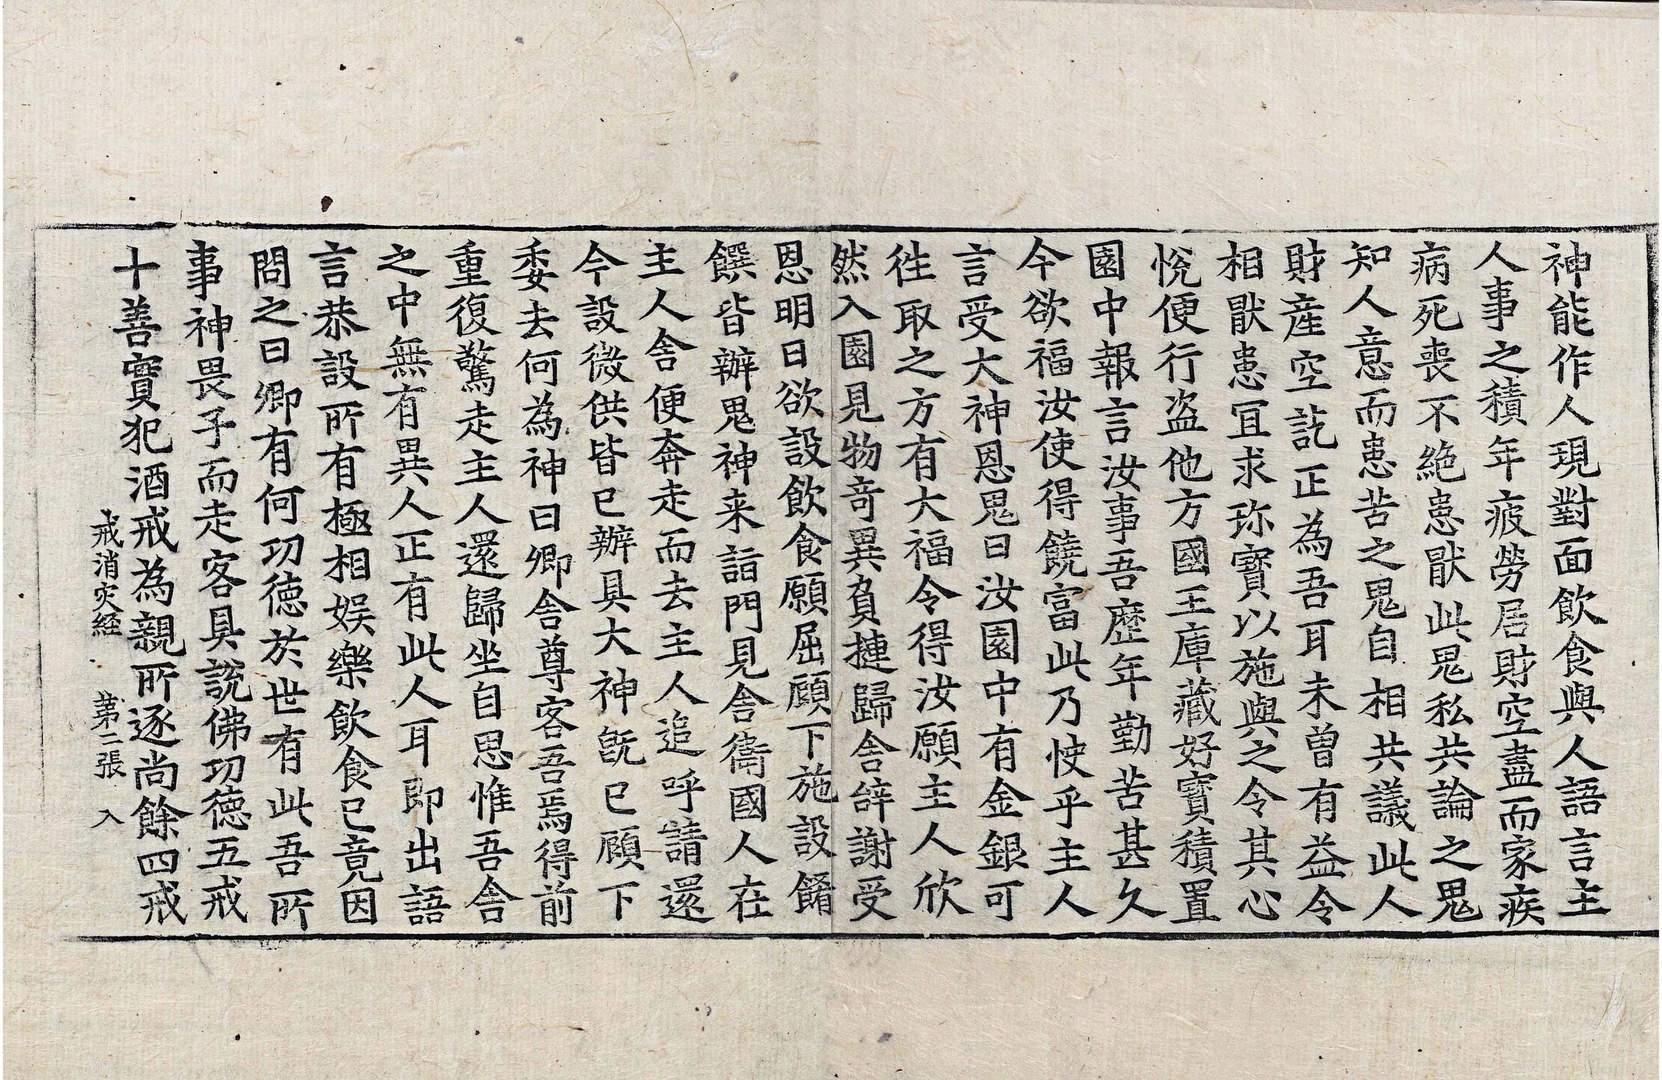 神能作人現對面飲食與人語言主
人事之積年疲勞居財空盡而家疾
病死喪不絶患猒此鬼私共論之鬼
知人意而患苦之鬼自相共議此人
財産空訖正為吾耳未曾有益令
相猒患宜求珎寶以施與之令其心
悅便行盜他方國王庫藏好寶積置
園中報言汝事吾歷年勤苦甚久
今欲福汝使得饒富此乃快乎主人
言受大神恩鬼曰汝園中有金銀可
徃取之方有大福令得汝願主人欣
然入園見物竒異負摙歸舎辝謝受
恩明日欲設飲食願屈顧下施設餚
饌皆辦鬼神来詣門見舎衛國人在
主人舎便奔走而去主人追呼請還
今設微供皆已辦具大神旣已顧下
委去何為神曰卿舎尊客吾焉得前
重復驚走主人還歸坐自思惟吾舎
之中無有異人正有此人耳即出語
言恭設所有極相娱樂飲食已竟因
問之曰卿有何功徳於世有此吾所
事神畏子而走客具說佛功德五戒
十善實犯酒戒為親所逐尚餘四戒
戒消灾経 第二張 入